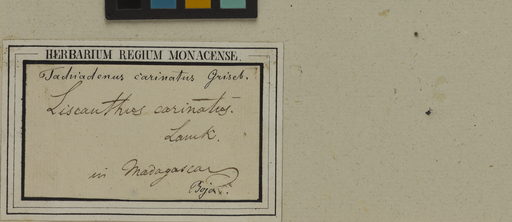 HERBARIUM REGIUM MONACENSE.
Tachiadenus carinatus Griseb.
Lisianthus carinatus.
Lamk.
in Madagascar
Bojer.